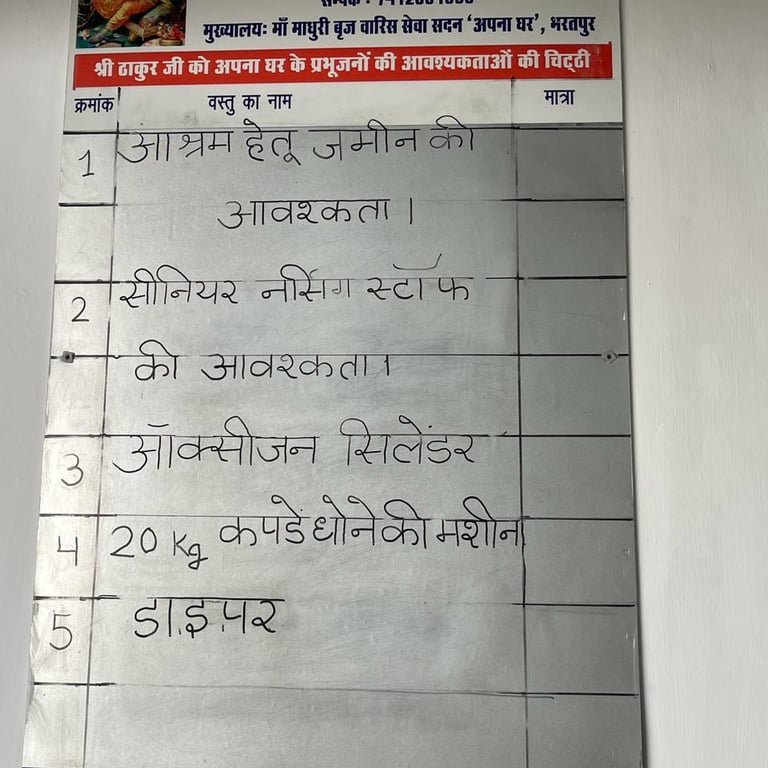 मुख्यालयः माँ माधुरी बृज वारिस सेवा सदन ‘अपना घर’, भरतपुर
श्री ठाकुर जी को अपना घर के प्रभूजनों की आवश्यकताओं की चिट्ठी
क्रमांक वस्तु का नाम मात्रा
1 आश्रम हेतू जमीन की
आवश्कता।
2 सीनियर नर्सिग स्टॉफ
की आवश्कता।
3 ऑक्सीजन सिलेंडर
4 20 Kg कपडें धोने की मशीन
5 डाइपर